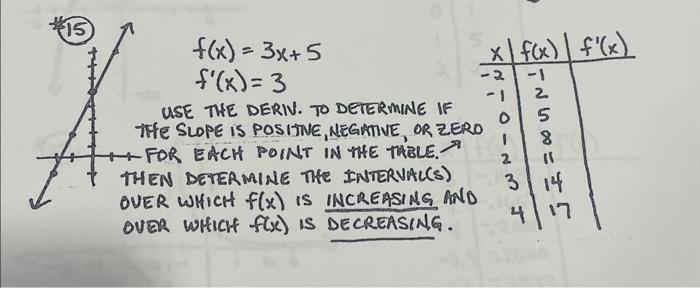 #15
f(x) = 3x+5
f'(x) = 3
USE THE DERIV. TO DETERMINE IF
THE SLOPE IS POSITIVE, NEGATIVE, OR ZERO
FOR EACH POINT IN THE TABLE.
THEN DETERMINE THE INTERVAL(S)
OVER WHICH f(x) IS INCREASING AND
OVER WHICH f(x) IS DECREASING.
x | f(x) | f'(x)
-2 | -1 |
-1 | 2 |
0 | 5 |
1 | 8 |
2 | 11 |
3 | 14 |
4 | 17 |